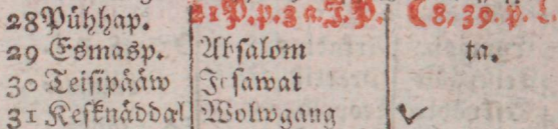 28 Pühhap. 21 P. p. 3 a. J. P. (8, 39. p. L.
29 Esmasp. Absalom ta.
30 Teisipääw Jesawat
31 Kesknäddal Wolwgang